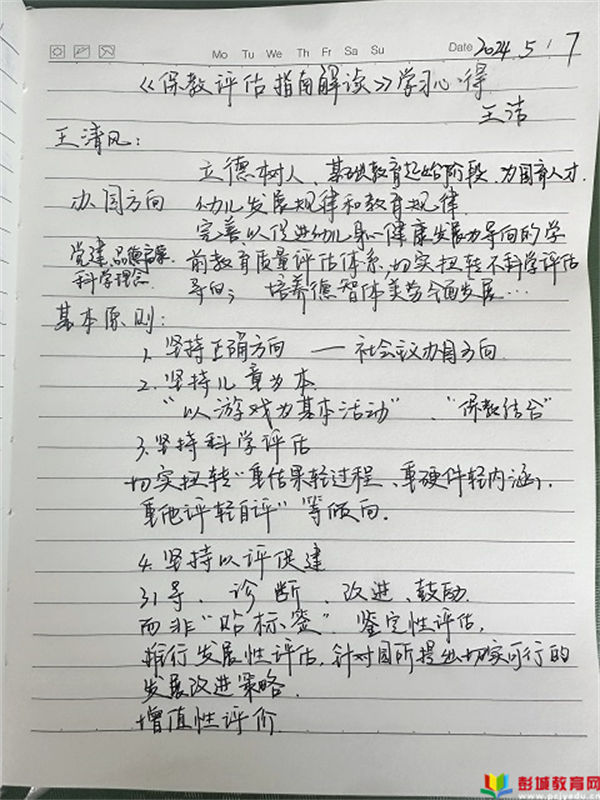 Mo Tu We Th Fr Sa Su Date 2024.5.17
《保教评估指南解读》学习心得
王洁
王清风：
立德树人、基础教育起始阶段、为国育人才
办园方向 幼儿发展规律和教育规律
完善以促进幼儿身心健康发展为导向的学
党建、品德启蒙 前教育质量评估体系,切实扭转不科学评估
科学理念 导向； 培养德智体美劳全面发展…
基本原则：
1. 坚持正确方向 — 社会主义办园方向
2. 坚持儿童为本
“以游戏为基本活动”、“保教结合”
3. 坚持科学评估
切实扭转“重结果轻过程、重硬件轻内涵、
重他评轻自评”等倾向.
4. 坚持以评促建
引导、诊断、改进、鼓励
而非“贴标签”鉴定性评估,
推行发展性评估,针对园所提出切实可行的
发展改进策略.
增值性评价
彭城教育网
www.pcjyedu.cn